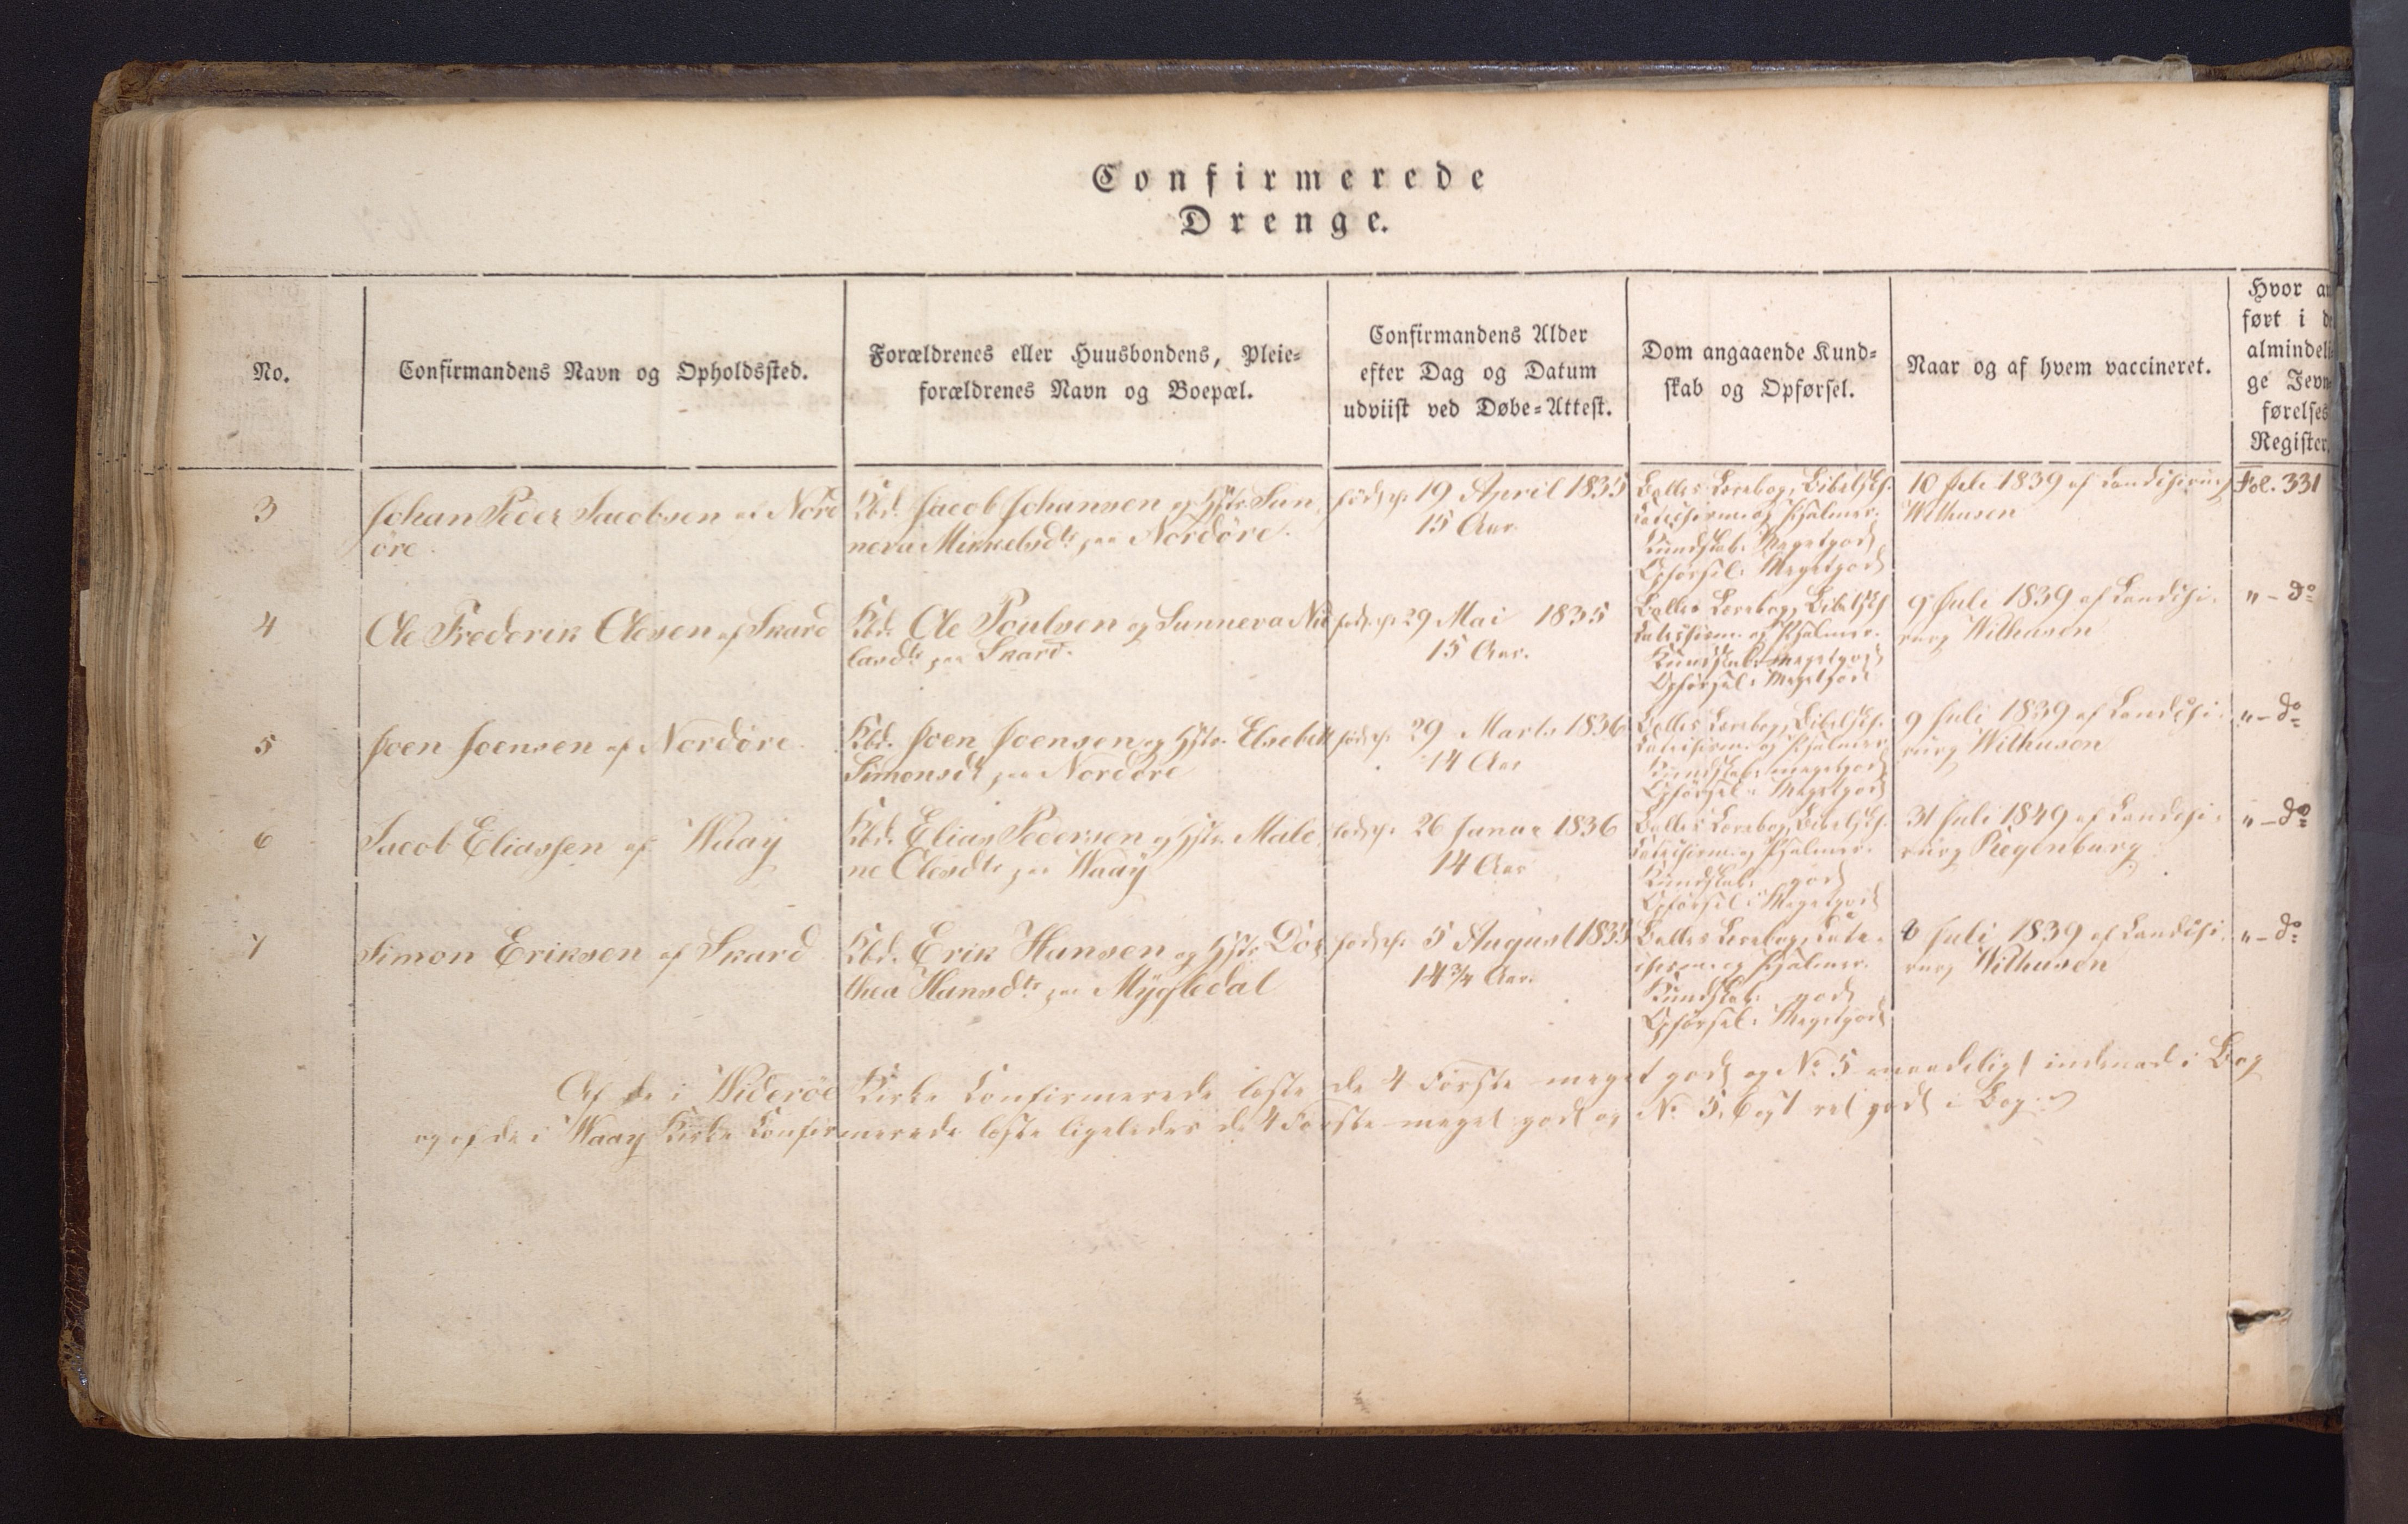 Confirmerede
Drenge.
No.
Confirmandens Navn og Opholdssted.
Forældrenes eller Huusbondens, Pleie-
forældrenes Navn og Boepæl.
Confirmandens Alder
efter Dag og Datum
udviist ved Døbe-Attest.
Dom angaaende Kund-
skab og Opførsel.
Naar og af hvem vaccineret.
Hvor an
ført i de
almindeli-
ge Jevn-
førelses
Register.
3
Johan Peder Jacobsen af Nord
öre
Kbd. Jacob Johansen og Hstr. Sun
neva Mikkelsdtr paa Nordöre.
född. 19 April 1835
15 Aar
Balles Lærebog, Bibelhist.
Katechisme og Psalmer.
Kundskab: Megetgodt
Opförsel: Megetgodt
10 Juli 1839 af Landchirurg
Wilhusen
Fol. 331
4
Ole Frederik Olesen af Skard
Kbd. Ole Poulsen og Sunneva Nic
lasdtr paa Skard.
född. 29 Mai 1835
15 Aar.
Balles Lærebog, Bibelhist
Katechisme og Psalmer.
Kundskab: megetgodt
Opförsel: Megetgodt
9 Juli 1839 af Landchi-
rurg Wilhusen
" - do
5
Joen Joensen af Nordöre
Kbd. Joen Joensen og Hstr. Elsebeth
Simonsdt paa Nordöre
född. 29 Marts 1836
14 Aar
Balles Lærebog, Bibelhist.
Katechisme og Psalmer
Kundskab: megetgodt
Opförsel: Megetgodt
9 Juli 1839 af Landchi-
rurg Wilhusen
" - do
6
Jacob Eliassen af Waaÿ
Kbd. Elias Pedersen og Hstr. Male
ne Olesdtr paa Waaÿ
född. 26 Januar 1836
14 Aar
Balles Lærebog, Bibelhist.
Katechisme og Psalmer.
Kundskab: godt
Opförsel: Megetgodt
31 Juli 1849 af Landchi-
rurg Regenburg
" - do
7
Simon Eriksen af Skard
Kbd. Erik Hansen og Hstr. Dor
thea Hansdtr. paa Mÿgledal
född. 5 August 1835
14 3/4 Aar.
Balles Lærebog, Kate-
chisme og Psalmer.
Kundskab: godt
Opförsel: Megetgodt
8 Juli 1839 af Landchi-
rurg Wilhusen
" - do
Af de i Wideröe Kirke Confirmerede læste de 4 Förste meget godt og No 5 maadeligt indenad i Bog
og af de i Waay Kirke Confirmerede læste ligeledes de 4 Förste meget godt og No 5, 6 og 7 ret godt i Bog.